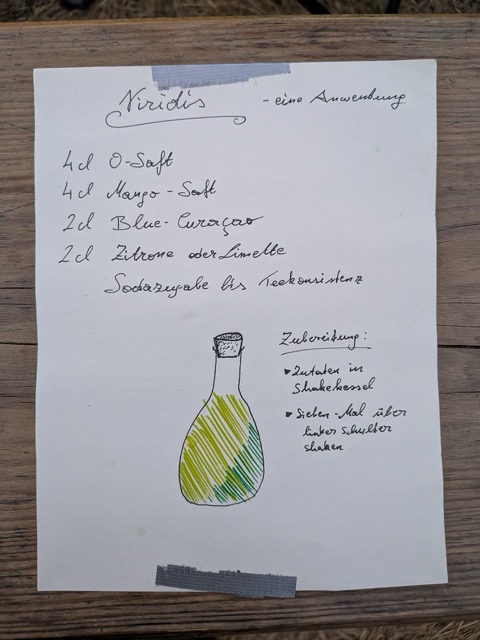 Viridis - eine Anwendung
4cl O-Saft
4cl Mango-Saft
2cl Blue-Curaçao
2cl Zitrone oder Limette
Sodazugabe bis Teekonsistenz
Zubereitung:
Zutaten in
Shakekessel
Sieben-Mal über
linker Schulter
shaken